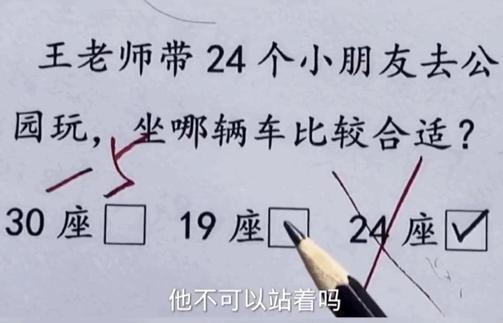 王老师带 24 个小朋友去公
园玩，坐哪辆车比较合适？
-5
30 座 19 座 24 座
他不可以站着吗